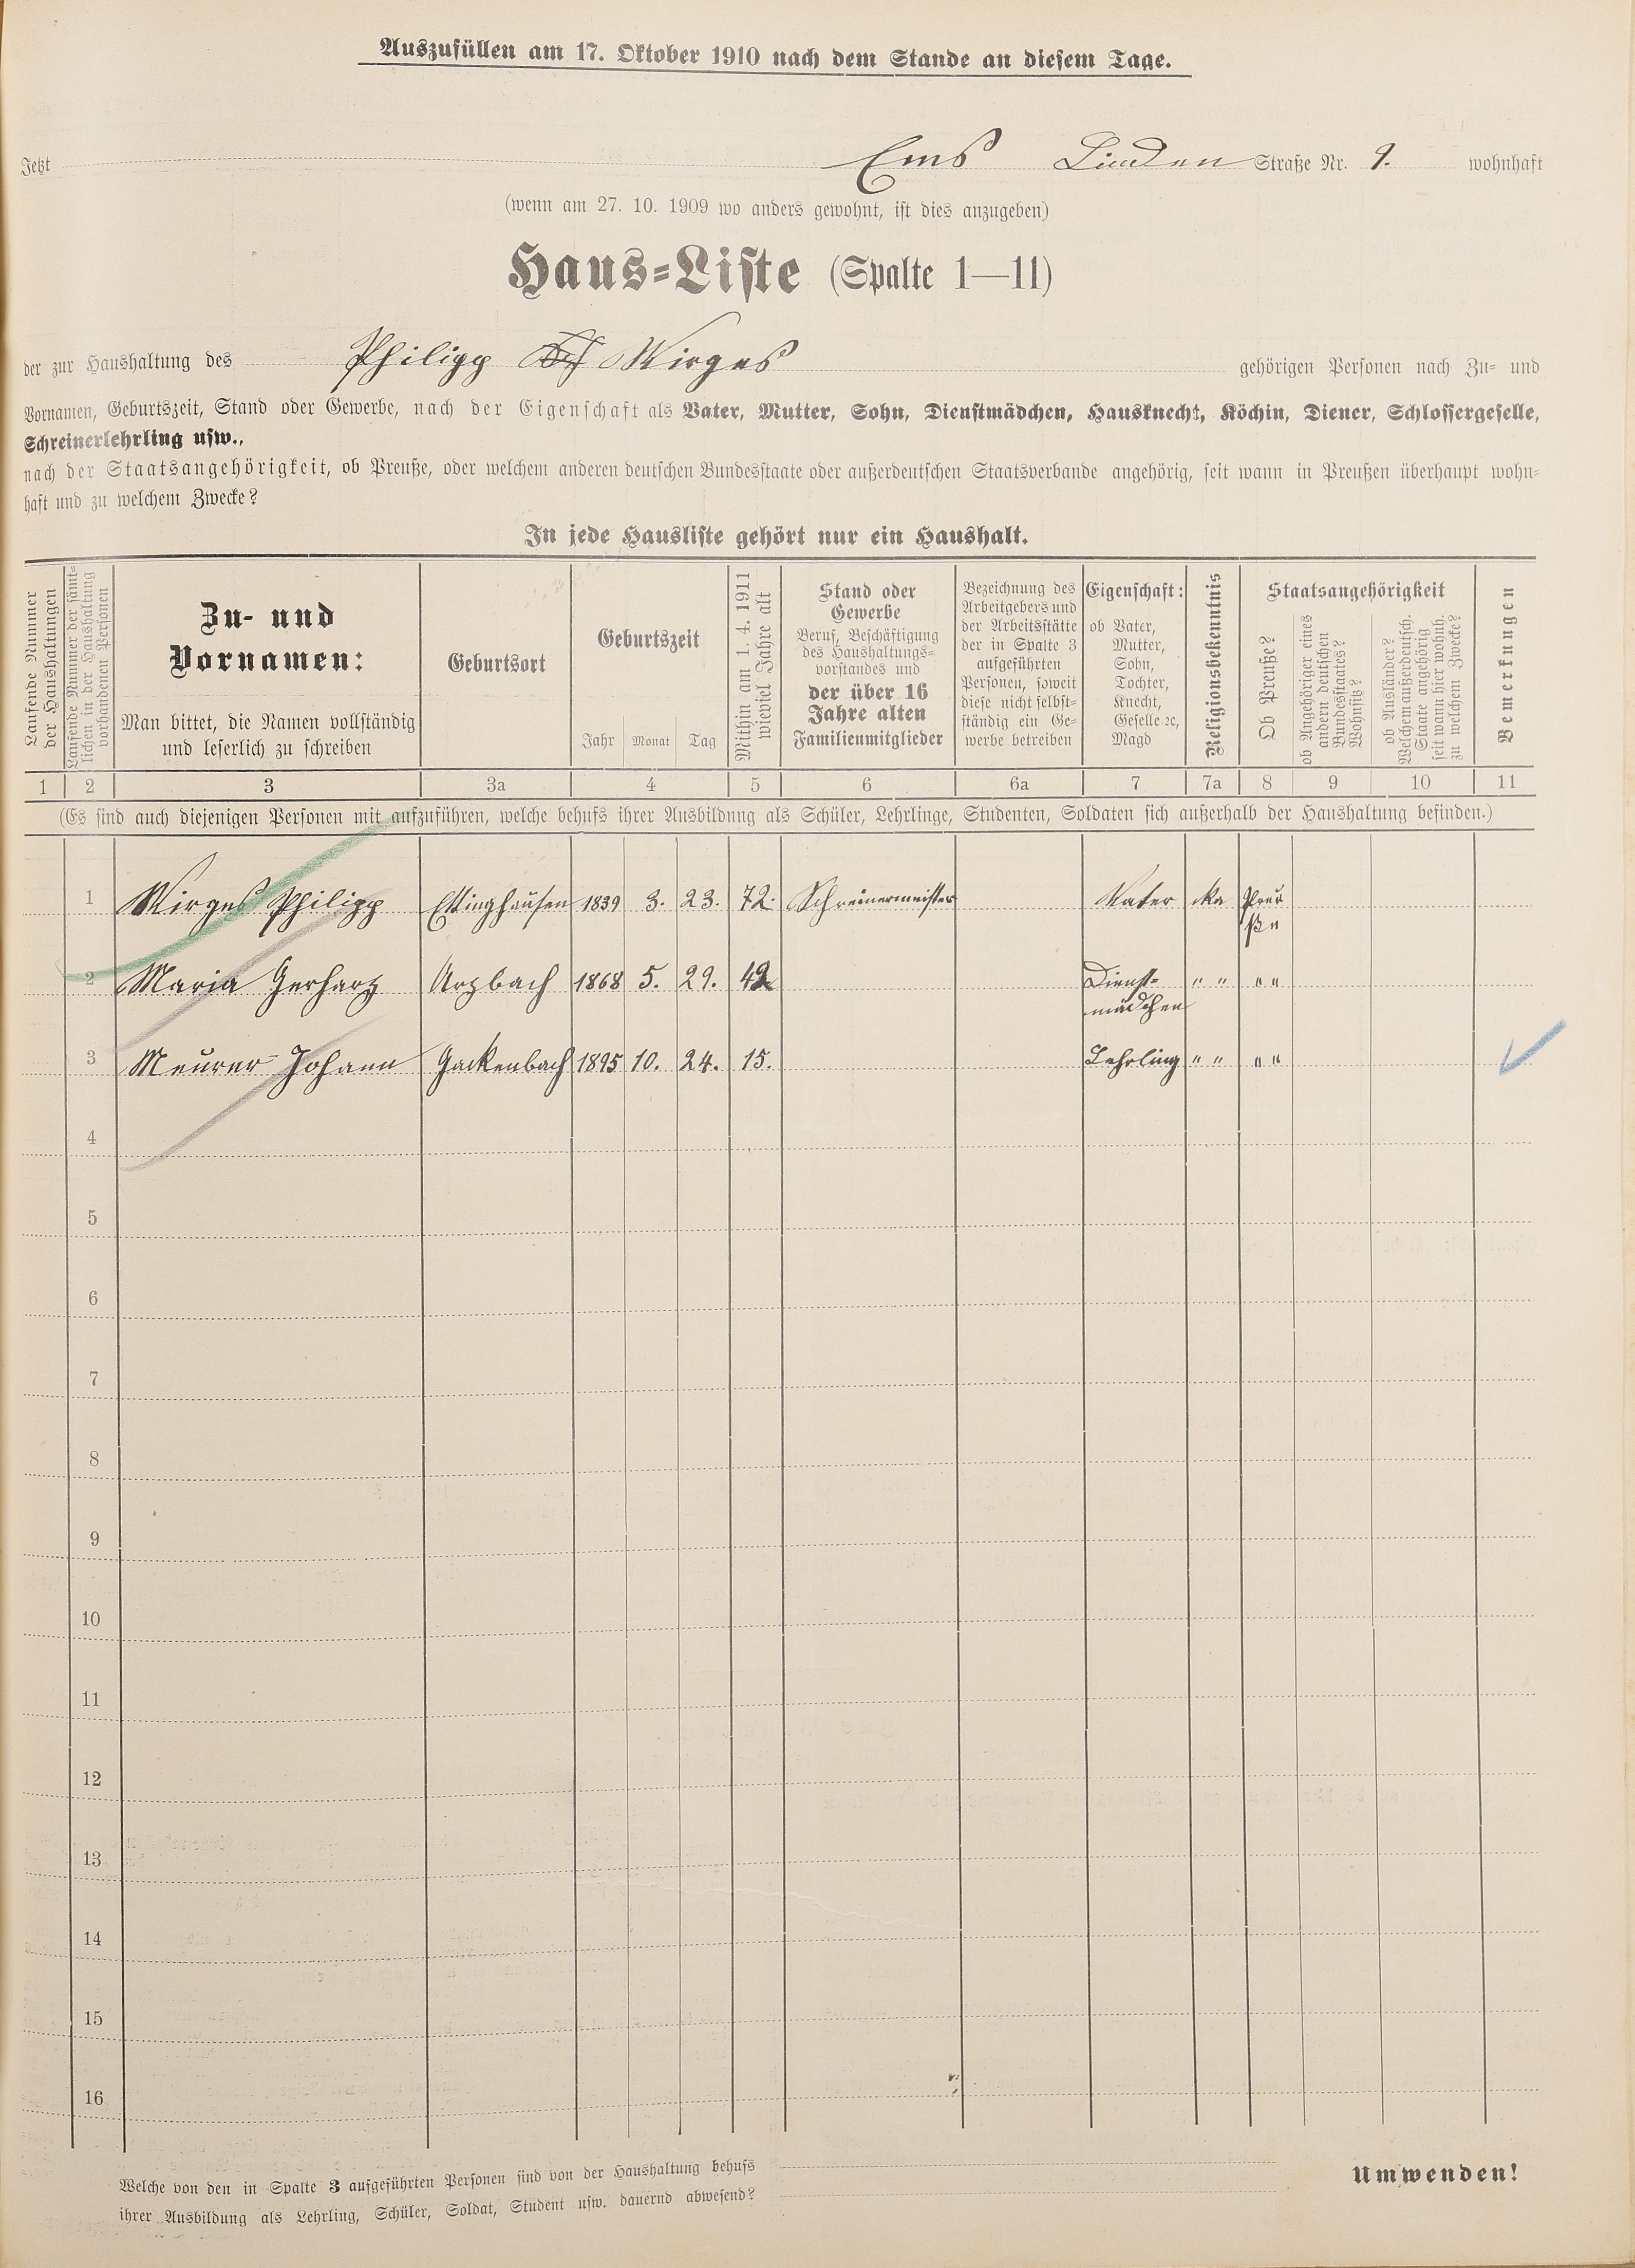 Auszufüllen am 17. Oktober 1910 nach dem Stande an diesem Tage.
Jetzt Ems Linden Straße Nr. 9. wohnhaft
(wenn am 27. 10. 1909 wo anders gewohnt, ist dies anzugeben)
Haus-Liste (Spalte 1—11)
der zur Haushaltung des Philipp Wirges gehörigen Personen nach Zu- und
Vornamen, Geburtszeit, Stand oder Gewerbe, nach der Eigenschaft als Vater, Mutter, Sohn, Dienstmädchen, Hausknecht, Köchin, Diener, Schlossergeselle,
Schreinerlehrling usw.,
nach der Staatsangehörigkeit, ob Preuße, oder welchem anderen deutschen Bundesstaate oder außerdeutschen Staatsverbande angehörig, seit wann in Preußen überhaupt wohn-
haft und zu welchem Zwecke?
In jede Hausliste gehört nur ein Haushalt.
Laufende Nummer
der Haushaltungen
Laufende Nummer der sämt-
lichen in der Haushaltung
vorhandenen Personen
Zu- und
Vornamen:
Man bittet, die Namen vollständig
und leserlich zu schreiben
Geburtsort
Geburtszeit
Jahr Monat Tag
Mithin am 1. 4. 1911
wieviel Jahre alt
Stand oder
Gewerbe
Beruf, Beschäftigung
des Haushaltungs-
vorstandes und
der über 16
Jahre alten
Familienmitglieder
Bezeichnung des
Arbeitgebers und
der Arbeitsstätte
der in Spalte 3
aufgeführten
Personen, soweit
diese nicht selbst-
ständig ein Ge-
werbe betreiben
Eigenschaft:
ob Vater,
Mutter,
Sohn,
Tochter,
Knecht,
Geselle ꝛc,
Magd
Religionsbekenntnis
Staatsangehörigkeit
Ob Preuße?
ob Angehöriger eines
andern deutschen
Bundesstaates?
Wohnsitz?
ob Ausländer?
Welchem außerdeutsch.
Staate angehörig
seit wann hier wohnh.
zu welchem Zwecke?
Bemerkungen
1 2 3 3a 4 5 6 6a 7 7a 8 9 10 11
(Es sind auch diejenigen Personen mit aufzuführen, welche behufs ihrer Ausbildung als Schüler, Lehrlinge, Studenten, Soldaten sich außerhalb der Haushaltung befinden.)
1 Wirges Philipp Ettinghausen 1839 3. 23. 72. Schreinermeister Vater ka Preu
ße
2 Maria Gerharz Arzbach 1868 5. 29. 42 Dienst- " " " "
mädchen
3 Meurer Johann Gackenbach 1895 10. 24. 15. Lehrling " " " "
4
5
6
7
8
9
10
11
12
13
14
15
16
Welche von den in Spalte 3 aufgeführten Personen sind von der Haushaltung behufs
ihrer Ausbildung als Lehrling, Schüler, Soldat, Student usw. dauernd abwesend?
Umwenden!